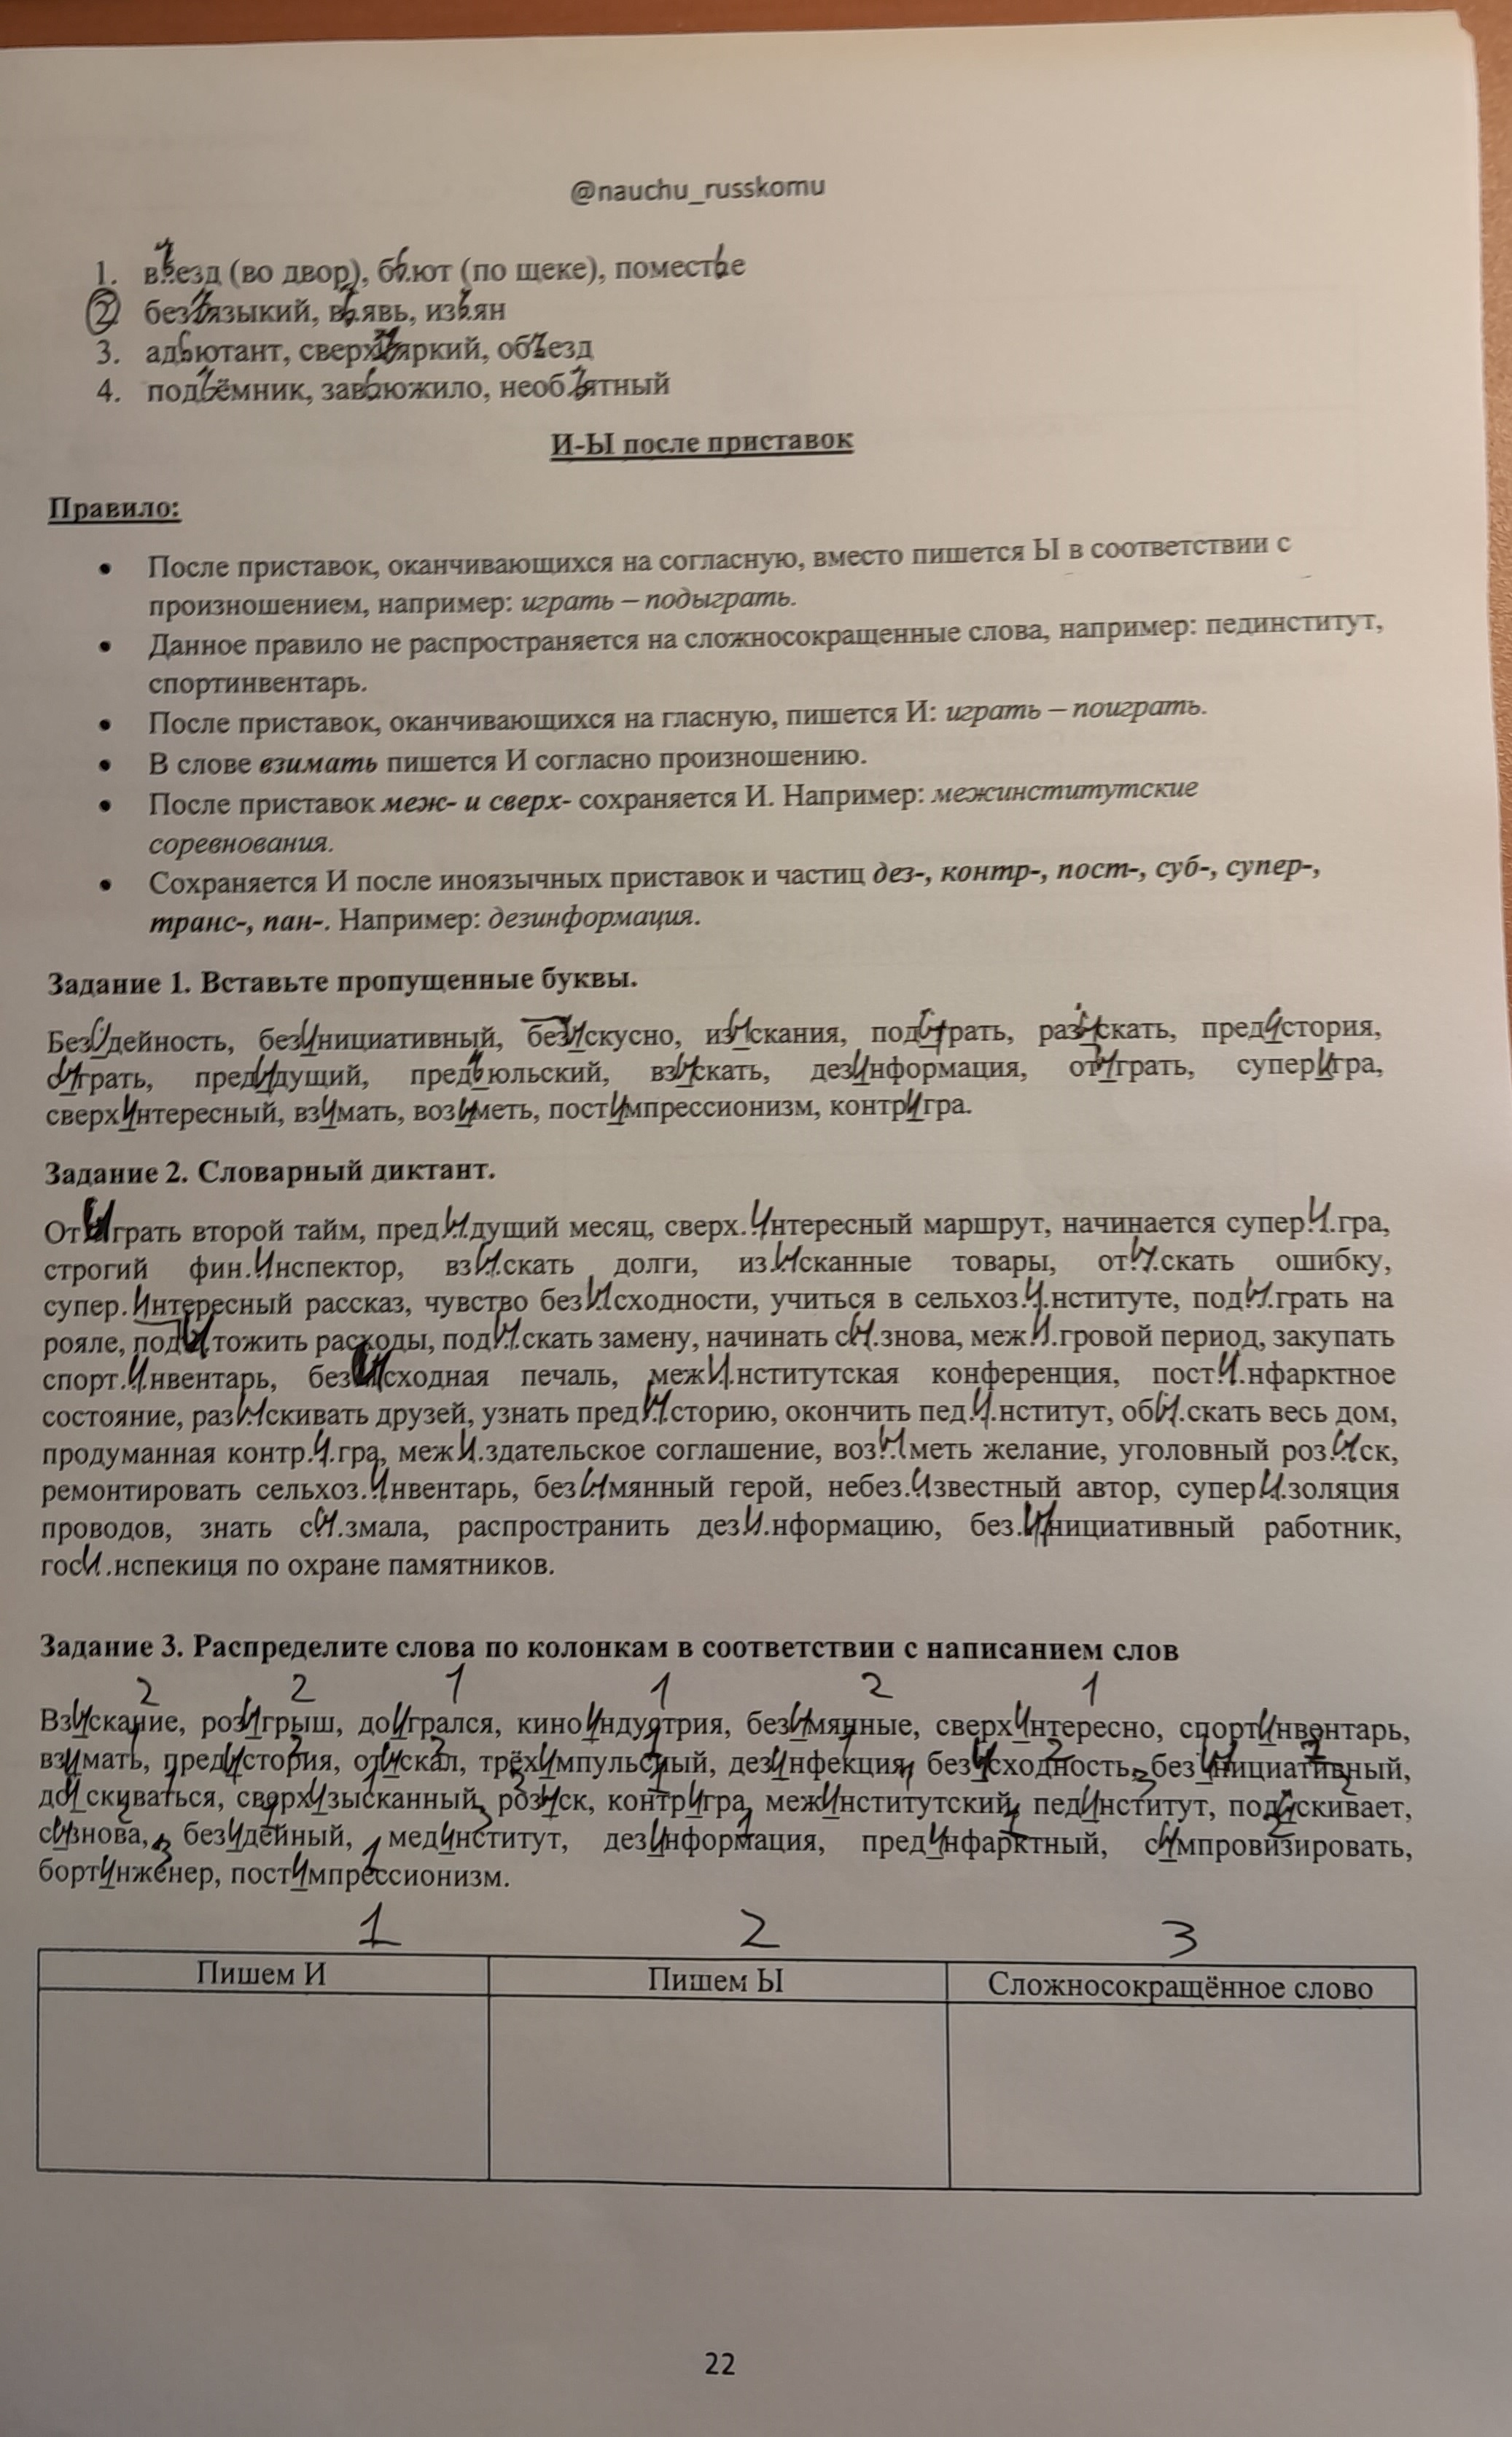 @nauchu_russkomu
1. въезд (во двор), бьют (по щеке), поместье
2. безъязыкий, въявь, изъян
3. адьютант, сверхъяркий, объезд
4. подъёмник, завьюжило, необъятный
И-Ы после приставок
Правило:
• После приставок, оканчивающихся на согласную, вместо пишется Ы в соответствии с
произношением, например: играть – подыграть.
• Данное правило не распространяется на сложносокращенные слова, например: пединститут,
спортинвентарь.
• После приставок, оканчивающихся на гласную, пишется И: играть – поиграть.
• В слове взимать пишется И согласно произношению.
• После приставок меж- и сверх- сохраняется И. Например: межинститутские
соревнования.
• Сохраняется И после иноязычных приставок и частиц дез-, контр-, пост-, суб-, супер-,
транс-, пан-. Например: дезинформация.
Задание 1. Вставьте пропущенные буквы.
Безыдейность, безынициативный, безыскусно, изыскания, подыграть, разыскать, предыстория,
сыграть, предыдущий, предыюльский, взыскать, дезинформация, отыграть, суперигра,
сверхинтересный, взимать, возыметь, постимпрессионизм, контригра.
Задание 2. Словарный диктант.
Отыграть второй тайм, пред.ы.дущий месяц, сверх.интересный маршрут, начинается суперИ.гра,
строгий фин.инспектор, взы.скать долги, из.ысканные товары, от.ы.скать ошибку,
супер.интересный рассказ, чувство безы.сходности, учиться в сельхоз.и.нституте, поды.грать на
рояле, подытожить расходы, поды.скать замену, начинать сы.знова, межи.гровой период, закупать
спорт.и.нвентарь, безысходная печаль, межи.нститутская конференция, пости.нфарктное
состояние, разыскивать друзей, узнать преды.сторию, окончить пед.и.нститут, обы.скать весь дом,
продуманная контр.и.гра, межи.здательское соглашение, возы.меть желание, уголовный роз.ыск,
ремонтировать сельхоз.инвентарь, безымянный герой, небез.ызвестный автор, супери.золяция
проводов, знать сы.змала, распространить дези.нформацию, без.ынициативный работник,
госи.нспекиця по охране памятников.
Задание 3. Распределите слова по колонкам в соответствии с написанием слов
2 2 1 1 2 1
Взыскание, розыгрыш, доигрался, киноиндустрия, безымянные, сверхинтересно, спортинвентарь,
взимать, предыстория, отыскал, трёхимпульсный, дезинфекция, безысходность, безынициативный,
доискиваться, сверхизысканный, розыск, контригра, межинститутский, пединститут, подыскивает,
сызнова, безыдейный, мединститут, дезинформация, предынфарктный, сымпровизировать,
бортинженер, постимпрессионизм.
1 2 3
Пишем И Пишем Ы Сложносокращённое слово
22